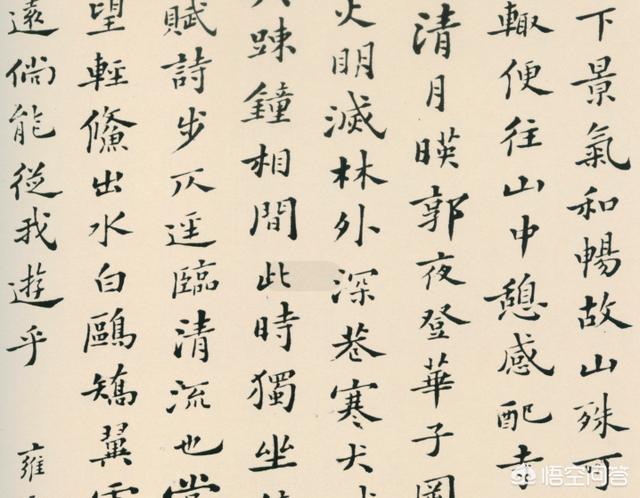 下景氣和暢故山殊可
輙便往山中憩感配寺
清月暎郭夜登華子岡
火明滅林外深巷寒犬
踈鐘相間此時獨坐
賦詩步仄逕臨清流也當
望輕鯈出水白鷗矯翼
遠倘能從我遊乎 雍
悟空问答